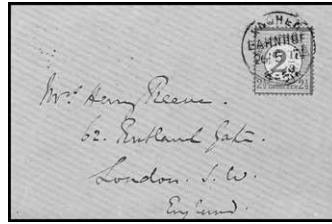 BAHNHOF
2
2½ 2½
Mrs. Henry Reeve.
62. Rutland Gate.
London. S. W.
England.